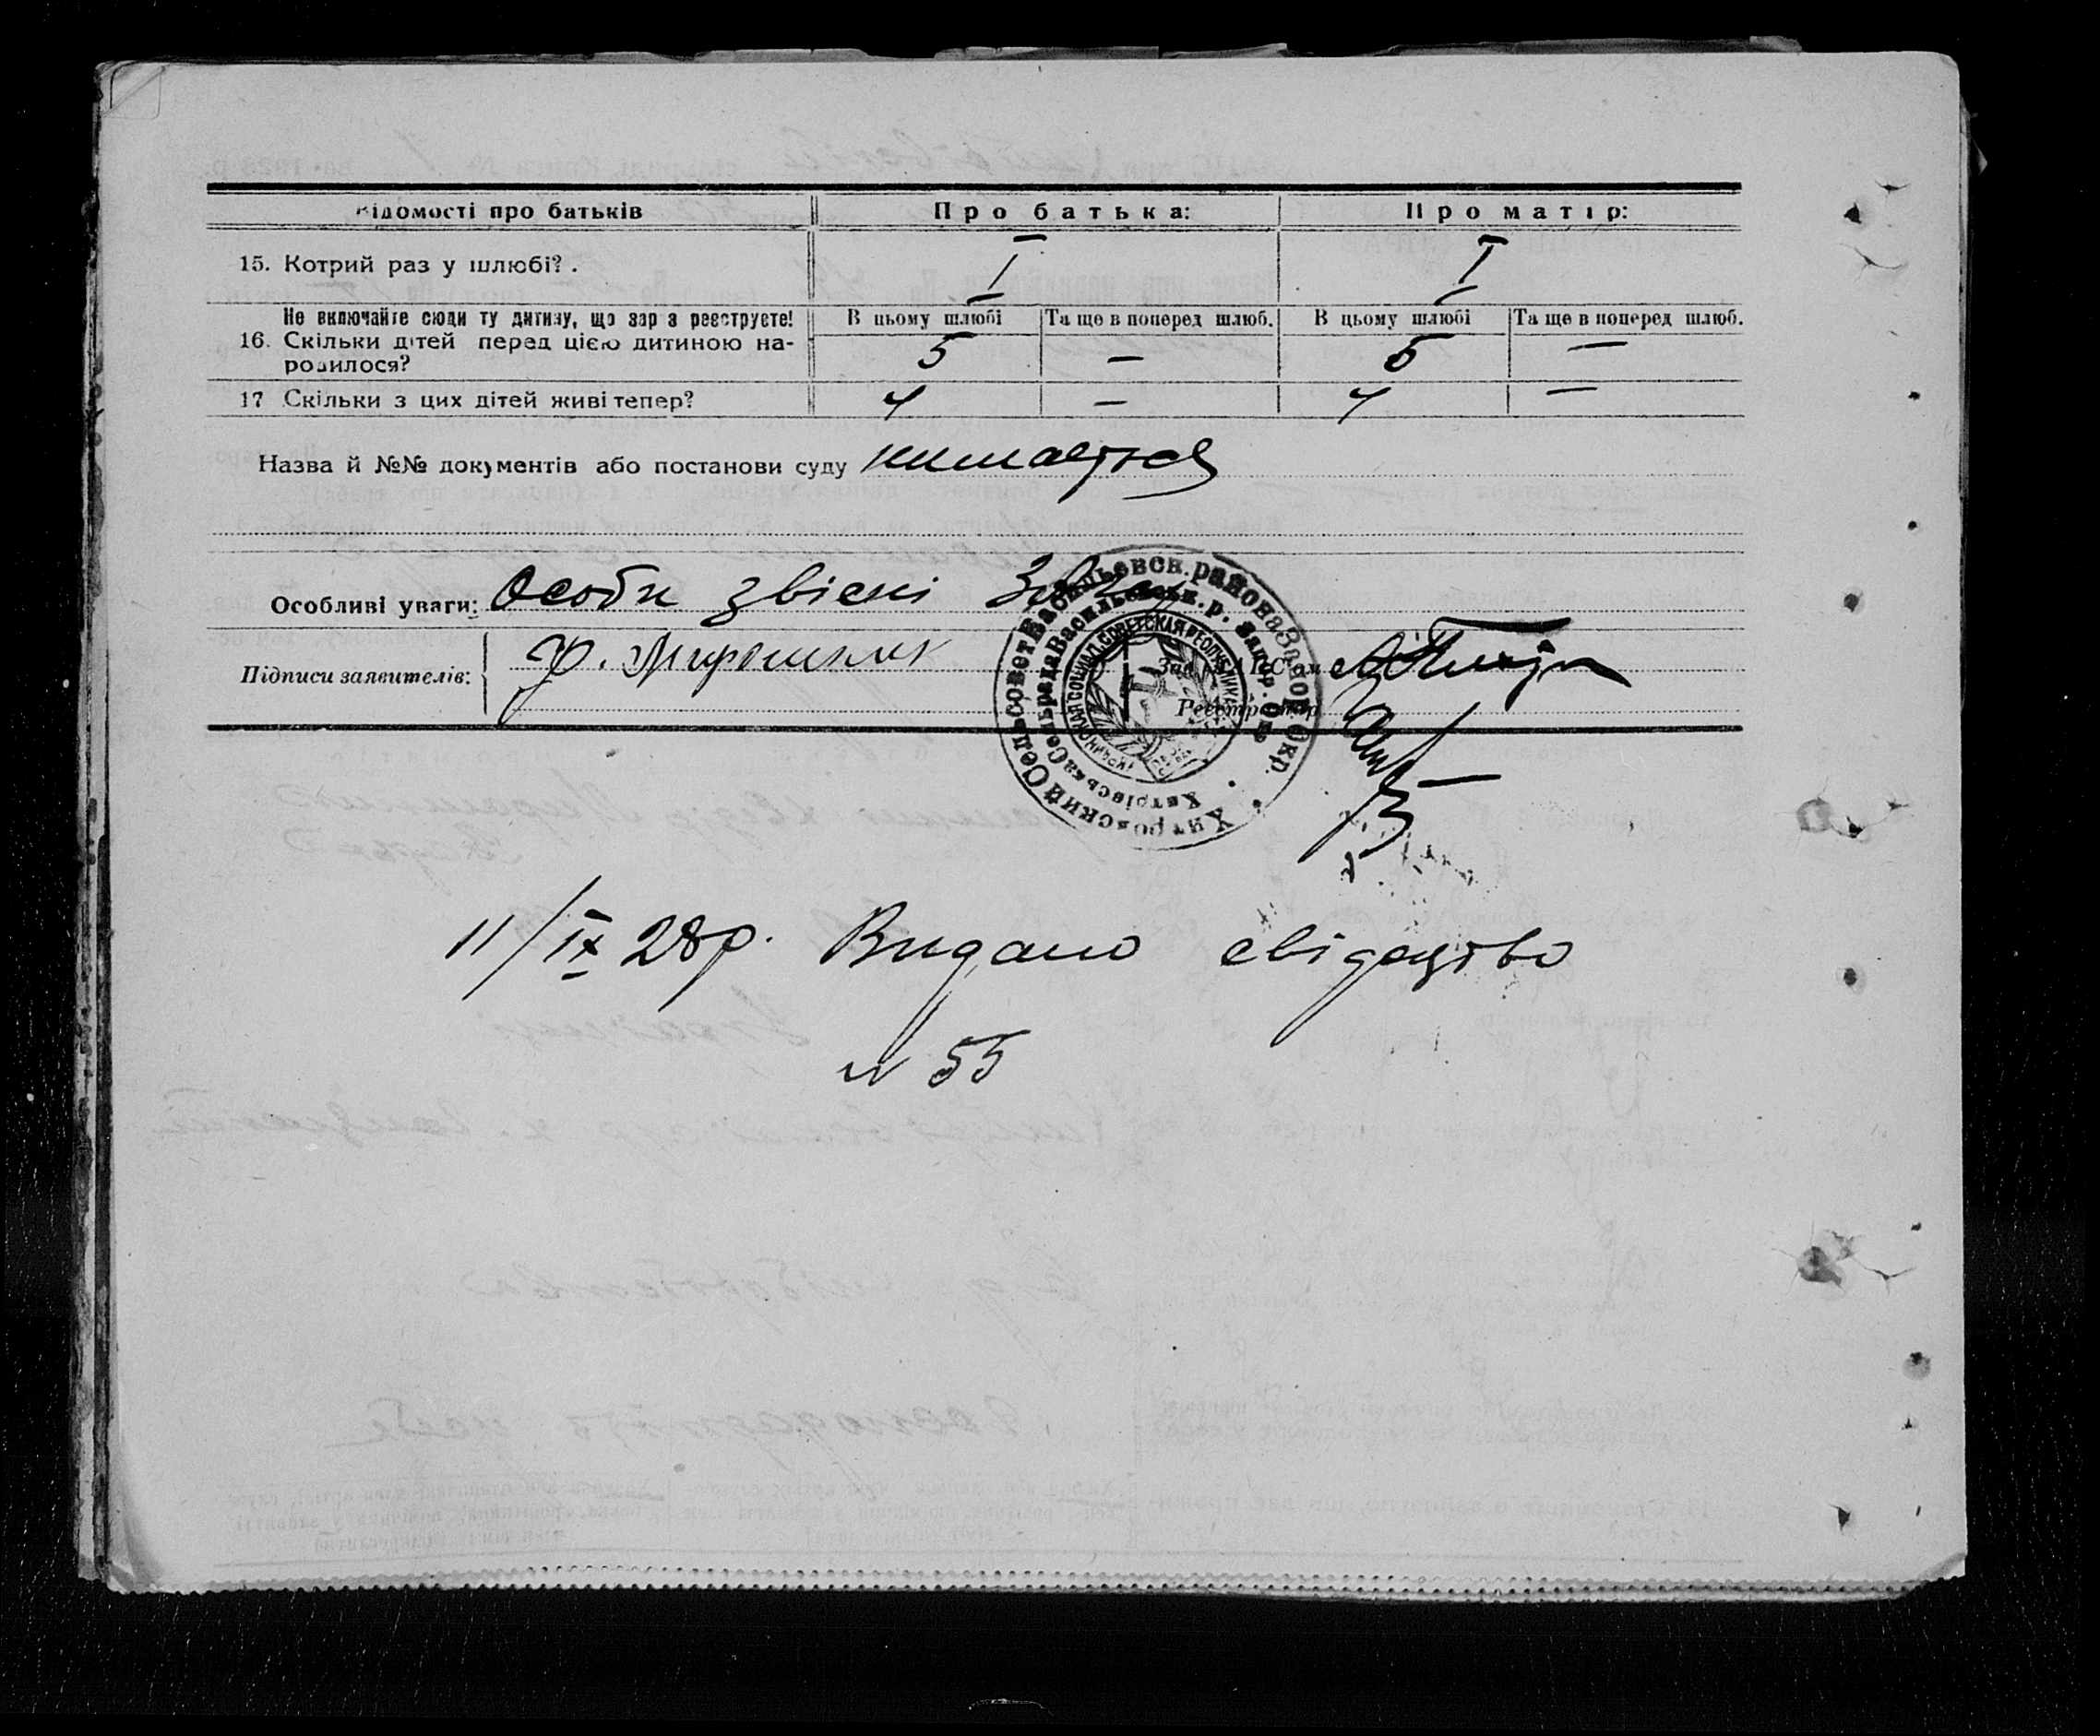 Відомості про батьків Про батька: Про матір:
15. Котрий раз у шлюбі? . I I
Не включайте сюди ту дитину, що зараз реєструєте! В цьому шлюбі Та ще в поперед шлюб. В цьому шлюбі Та ще в поперед шлюб.
16. Скільки дітей перед цією дитиною на- 5 — 5 —
родилося?
17 Скільки з цих дітей живі тепер? 4 — 4 —
Назва й №№ документів або постанови суду
Особливі уваги: Особи звісні
Підписи заявителів: Ф. Мирошник Зав. ЗАГС'ом
Реєстратор
Хитровский Сельсовет Васильевск. района Запор. Окр.
Хитрівська Сельрада Васильевськ. р. Запор. Окр.
11/IX 28р. Видано свідоцтво
N 55